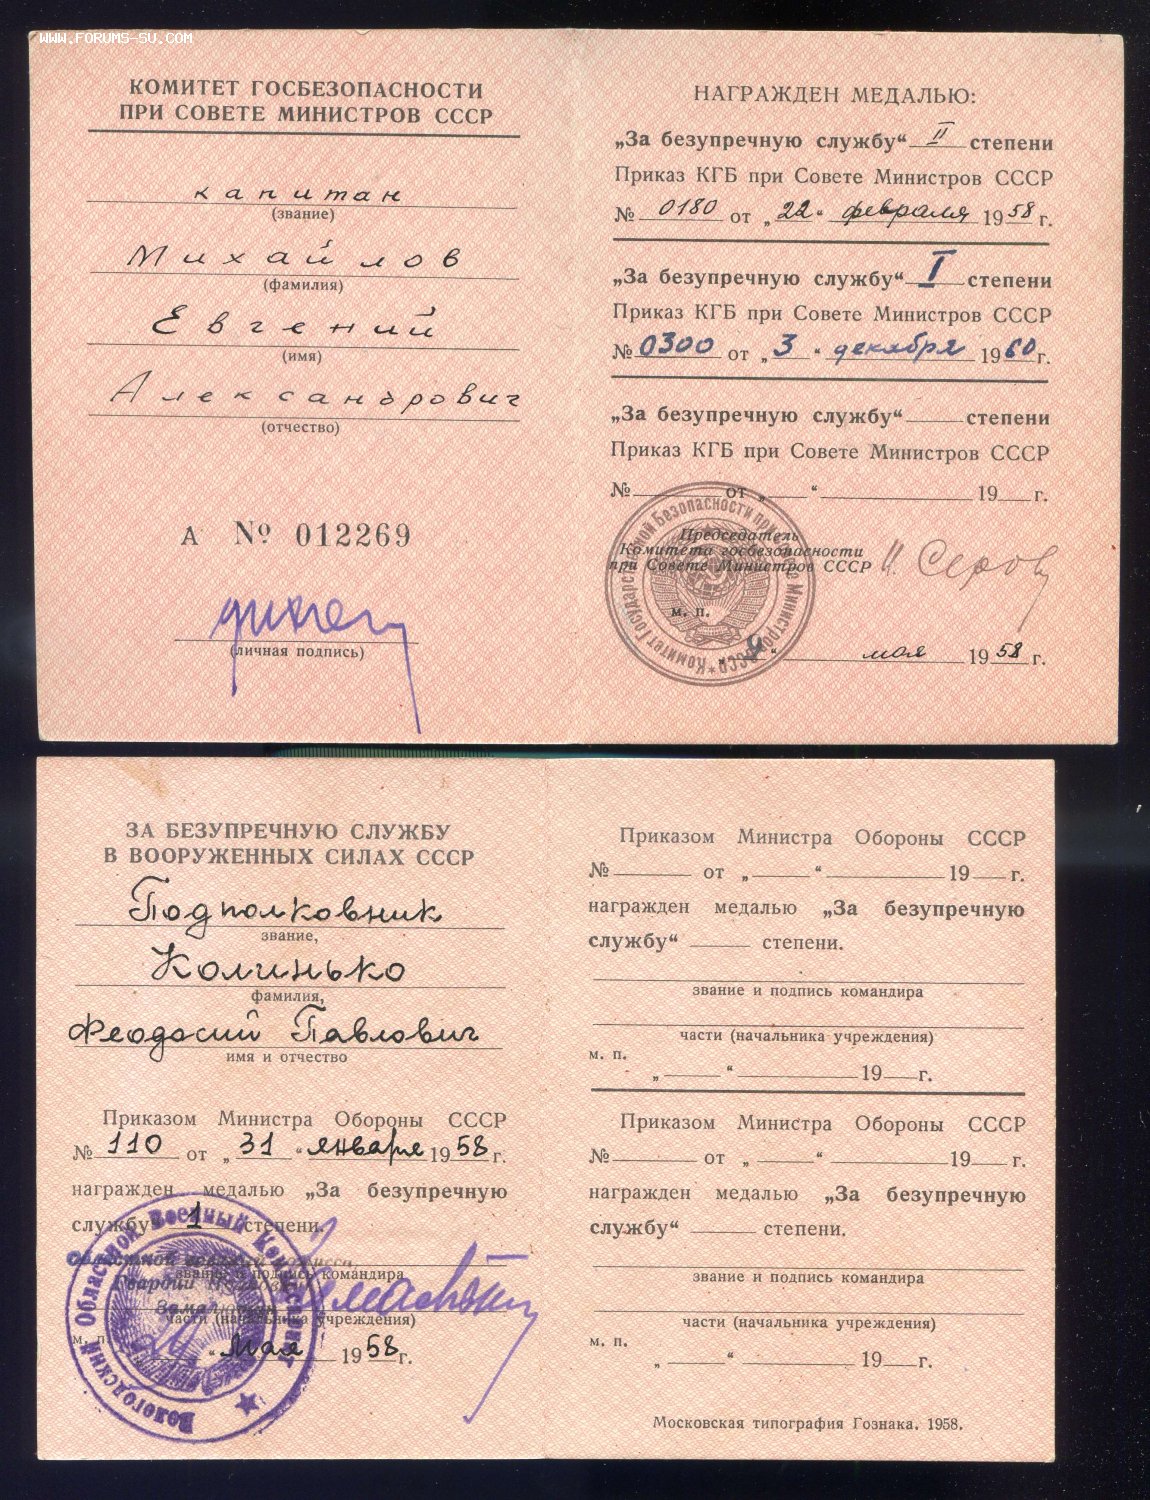 WWW.FORUMS-SU.COM
КОМИТЕТ ГОСБЕЗОПАСНОСТИ
ПРИ СОВЕТЕ МИНИСТРОВ СССР
капитан
(звание)
Михайлов
(фамилия)
Евгений
(имя)
Александрович
(отчество)
А № 012269
(личная подпись)
НАГРАЖДЕН МЕДАЛЬЮ:
„За безупречную службу“ II степени
Приказ КГБ при Совете Министров СССР
№ 0180 от „22“ февраля 1958 г.
„За безупречную службу“ I степени
Приказ КГБ при Совете Министров СССР
№ 0300 от „3“ декабря 1960 г.
„За безупречную службу“ степени
Приказ КГБ при Совете Министров СССР
№ от „ “ 19 г.
Председатель
Комитета госбезопасности
при Совете Министров СССР И. Серов
м. п.
„9“ мая 1958 г.
Комитет Государственной Безопасности при Совете Министров СССР
ЗА БЕЗУПРЕЧНУЮ СЛУЖБУ
В ВООРУЖЕННЫХ СИЛАХ СССР
Подполковник
звание,
Колинько
фамилия,
Феодосий Павлович
имя и отчество
Приказом Министра Обороны СССР
№ 110 от „31“ января 1958 г.
награжден медалью „За безупречную
службу“ 1 степени.
звание и подпись командира
части (начальника учреждения)
м. п.
“ мая 1958 г.
Вологодский Областной Военный Комиссариат
Приказом Министра Обороны СССР
№ от „ “ 19 г.
награжден медалью „За безупречную
службу“ степени.
звание и подпись командира
части (начальника учреждения)
м. п.
„ “ 19 г.
Приказом Министра Обороны СССР
№ от „ “ 19 г.
награжден медалью „За безупречную
службу“ степени.
звание и подпись командира
части (начальника учреждения)
м. п.
„ “ 19 г.
Московская типография Гознака. 1958.